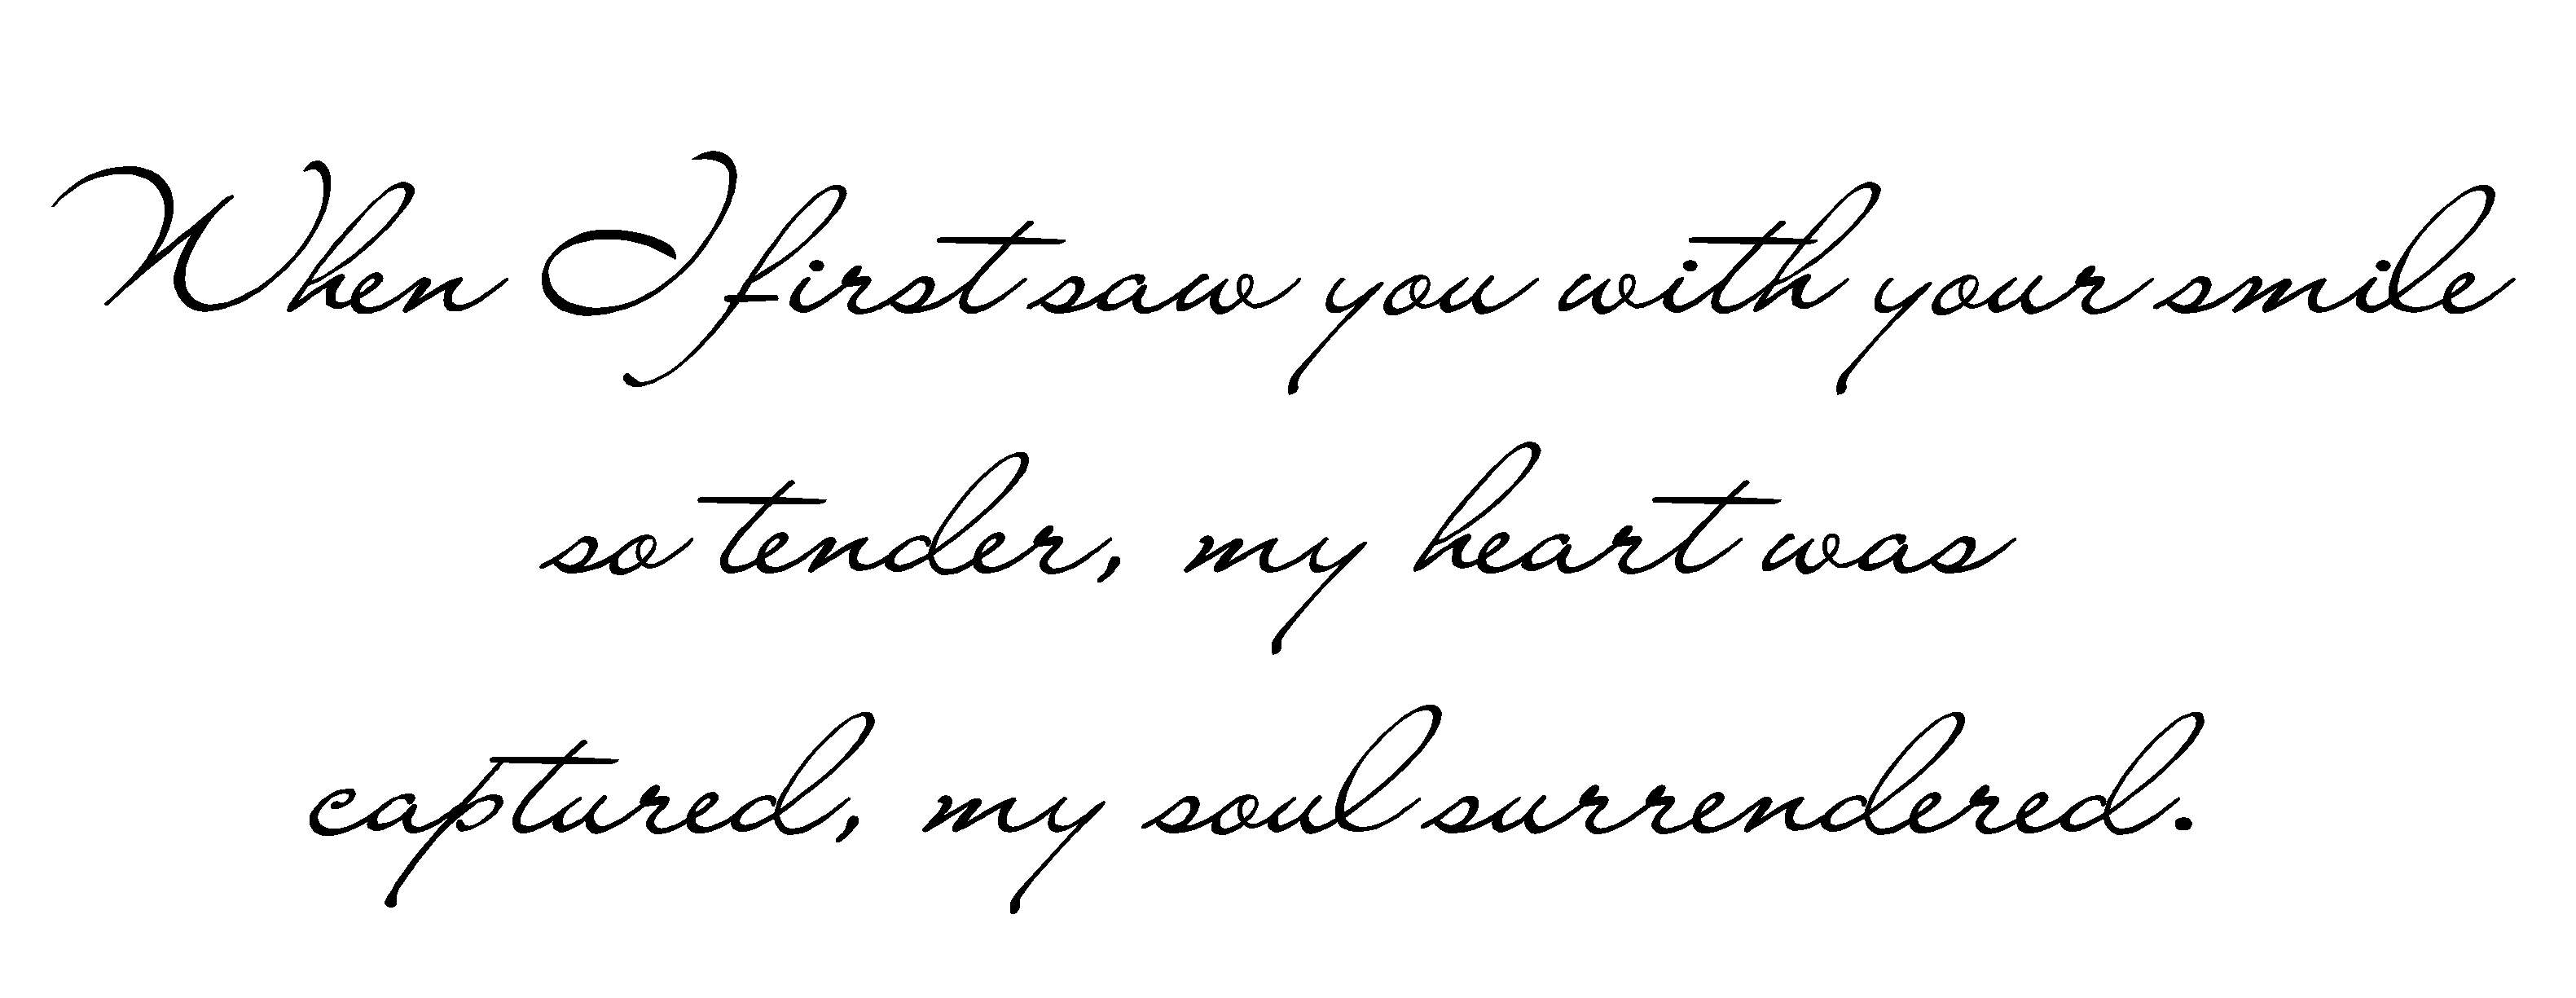 When I first saw you with your smile
so tender, my heart was
captured, my soul surrendered.